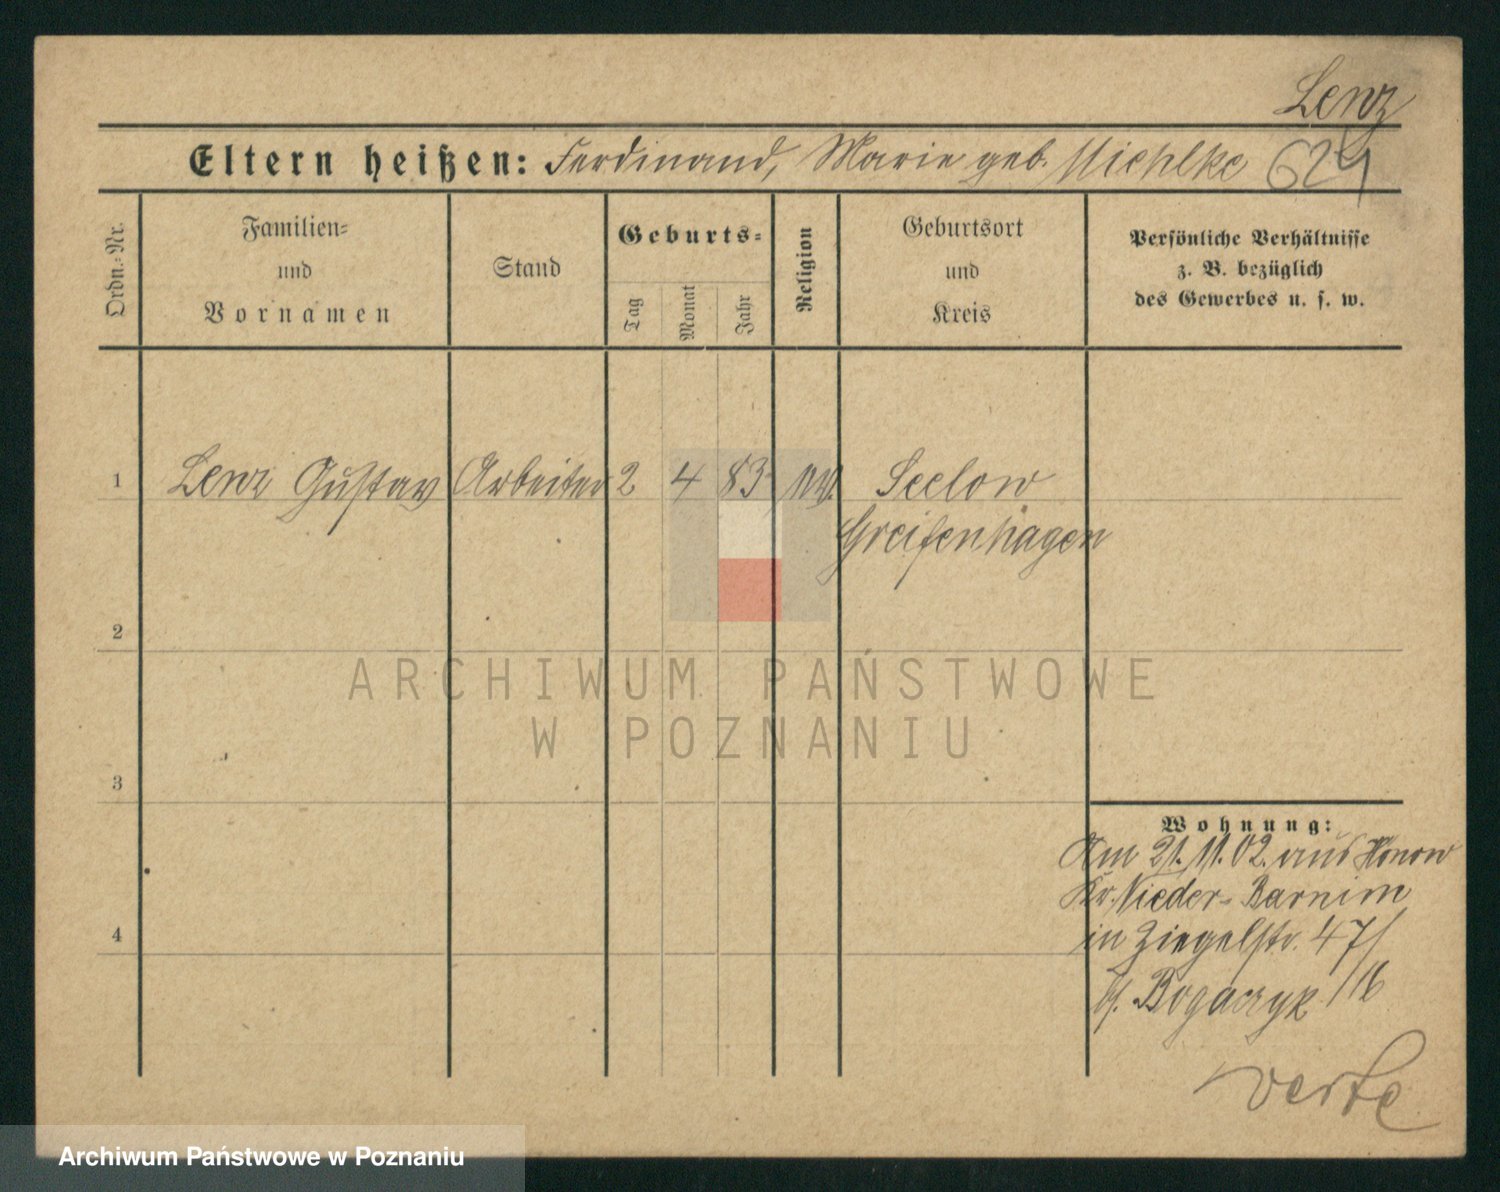 Lenz
Eltern heißen: Ferdinand, Marie geb. Michlke 624
Ordn.-Nr.
Familien-
und
Vornamen
Stand
Geburts-
Tag
Monat
Jahr
Religion
Geburtsort
und
Kreis
Persönliche Verhältnisse
z. B. bezüglich
des Gewerbes u. s. w.
1 Lenz Gustav Arbeiter 2 4 83 Seelow
Greifenhagen
2
ARCHIWUM PAŃSTWOWE
W POZNANIU
3
Wohnung:
Am 21.11.02. aus Hönow
Kr. Nieder-Barnim
4
in Ziegelstr. 47/
b. Bogaczyk
verte
Archiwum Państwowe w Poznaniu